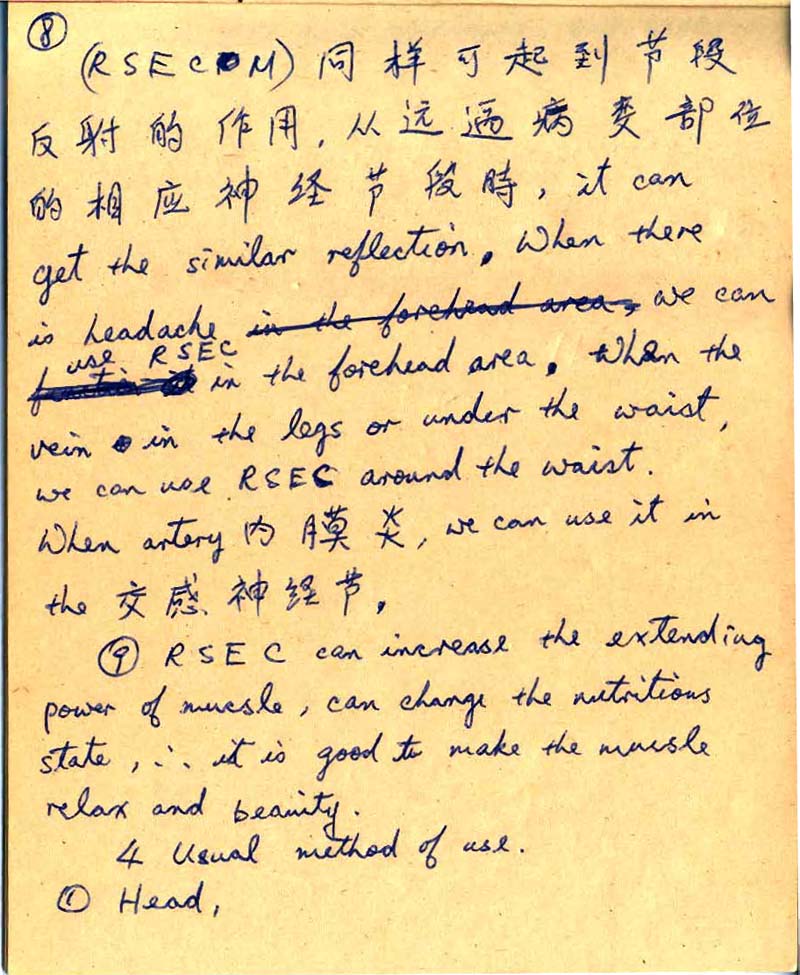 ⑧
(RSECOM) 同样可起到节段
反射的作用，从远逼病变部位
的相应神经节段時，it can
get the similar reflection. When there
is headache in the forehead area, we can
use RSEC
in the forehead area. When the
vein in the legs or under the waist,
we can use RSEC around the waist.
When artery 内膜炎, we can use it in
the 交感神经节.
⑨ RSEC can increase the extending
power of mucsle, can change the nutritious
state, ∴ it is good to make the mucsle
relax and beainty.
4 Usual method of use.
① Head,